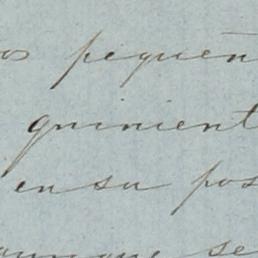 os pequeñ
quinient
en su pos
aunque se